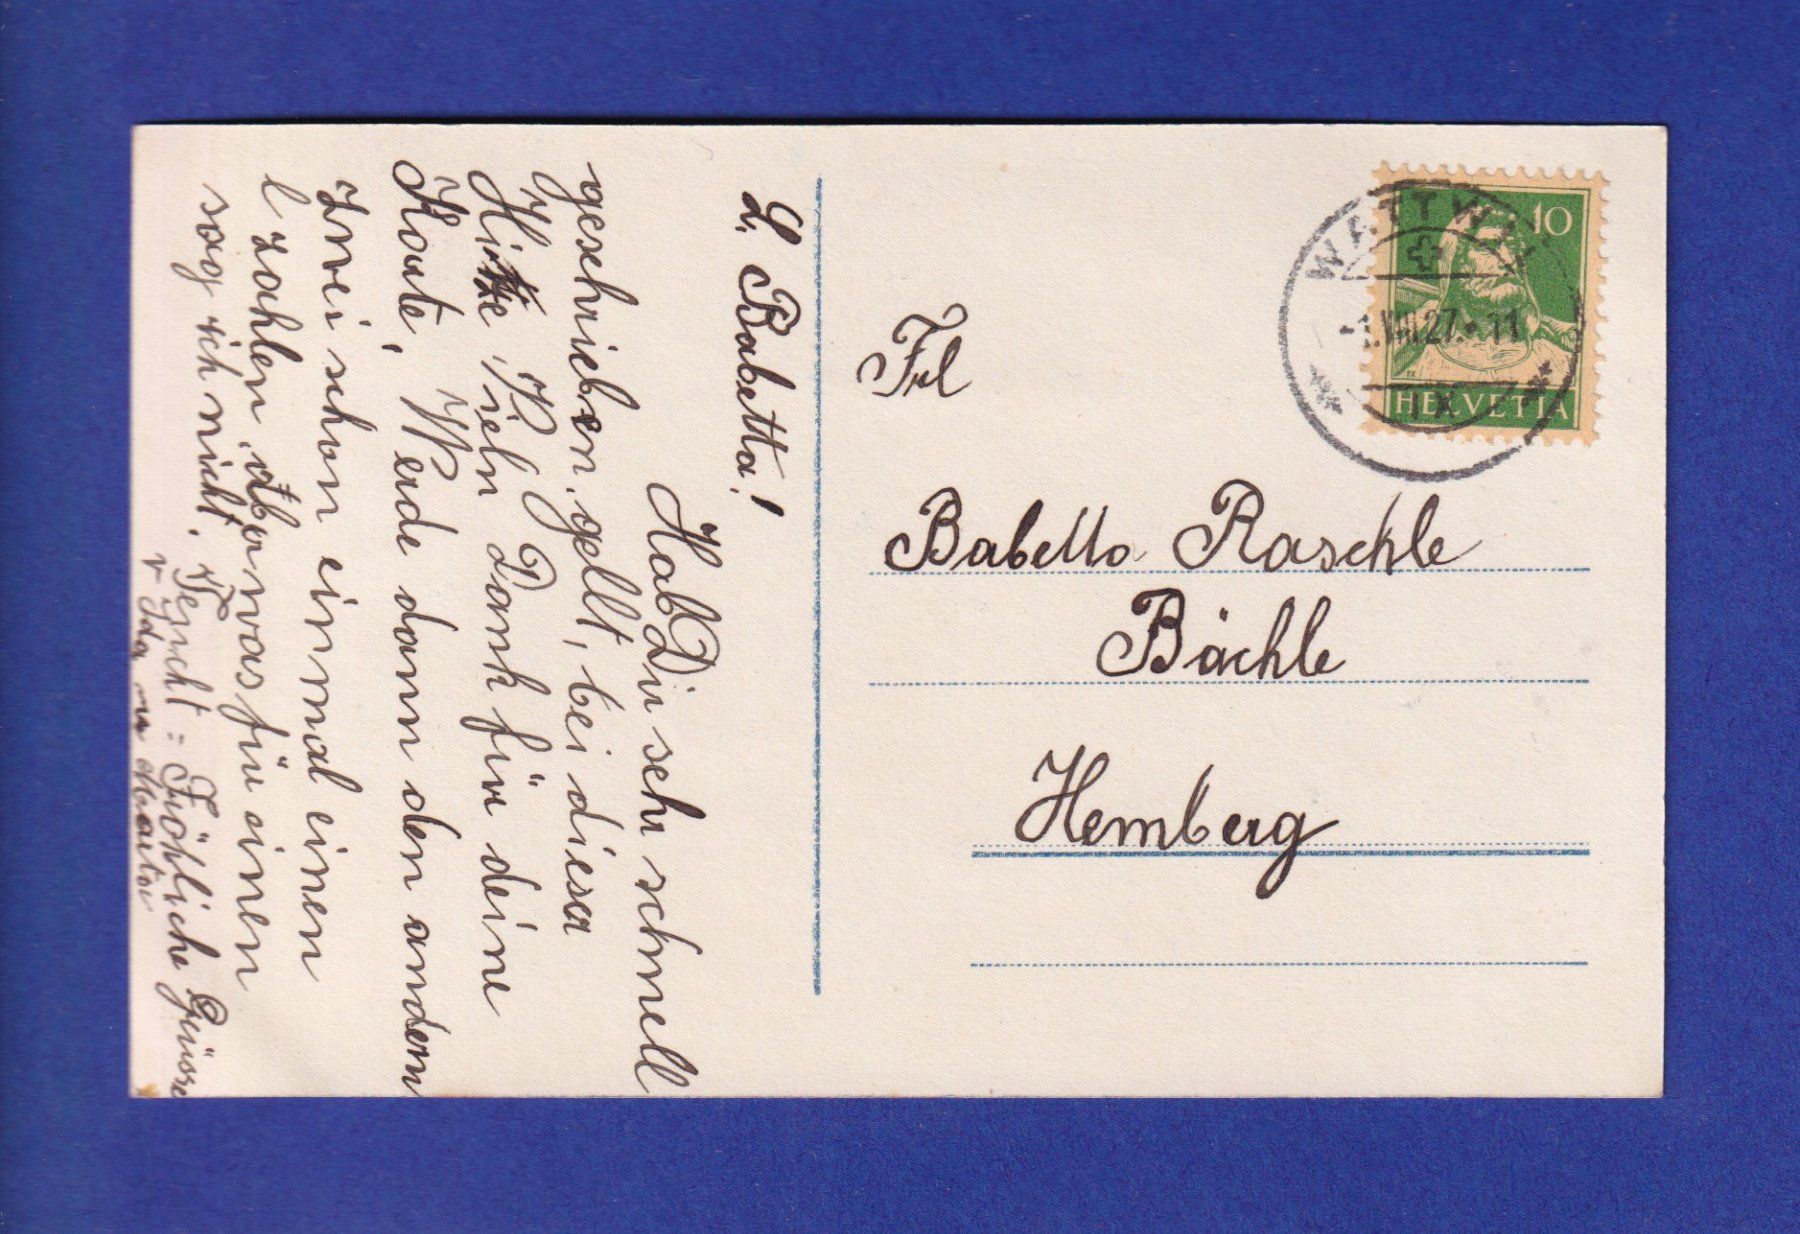 L. Babetta!
Hab Dir sehr schnell
geschrieben, gellt, bei dieser
Hitze, Vieln Dank für deine
Karte, Werde dann den andern
Zwei schon einmal einen
zahlen, was für einen
sag ich nicht. Fröhliche Grüsse
v Ida
Frl
Babetta Raschle
Bächle
Hemberg
WATTWIL
-1.VIII.27.-11
IX
10
HELVETIA